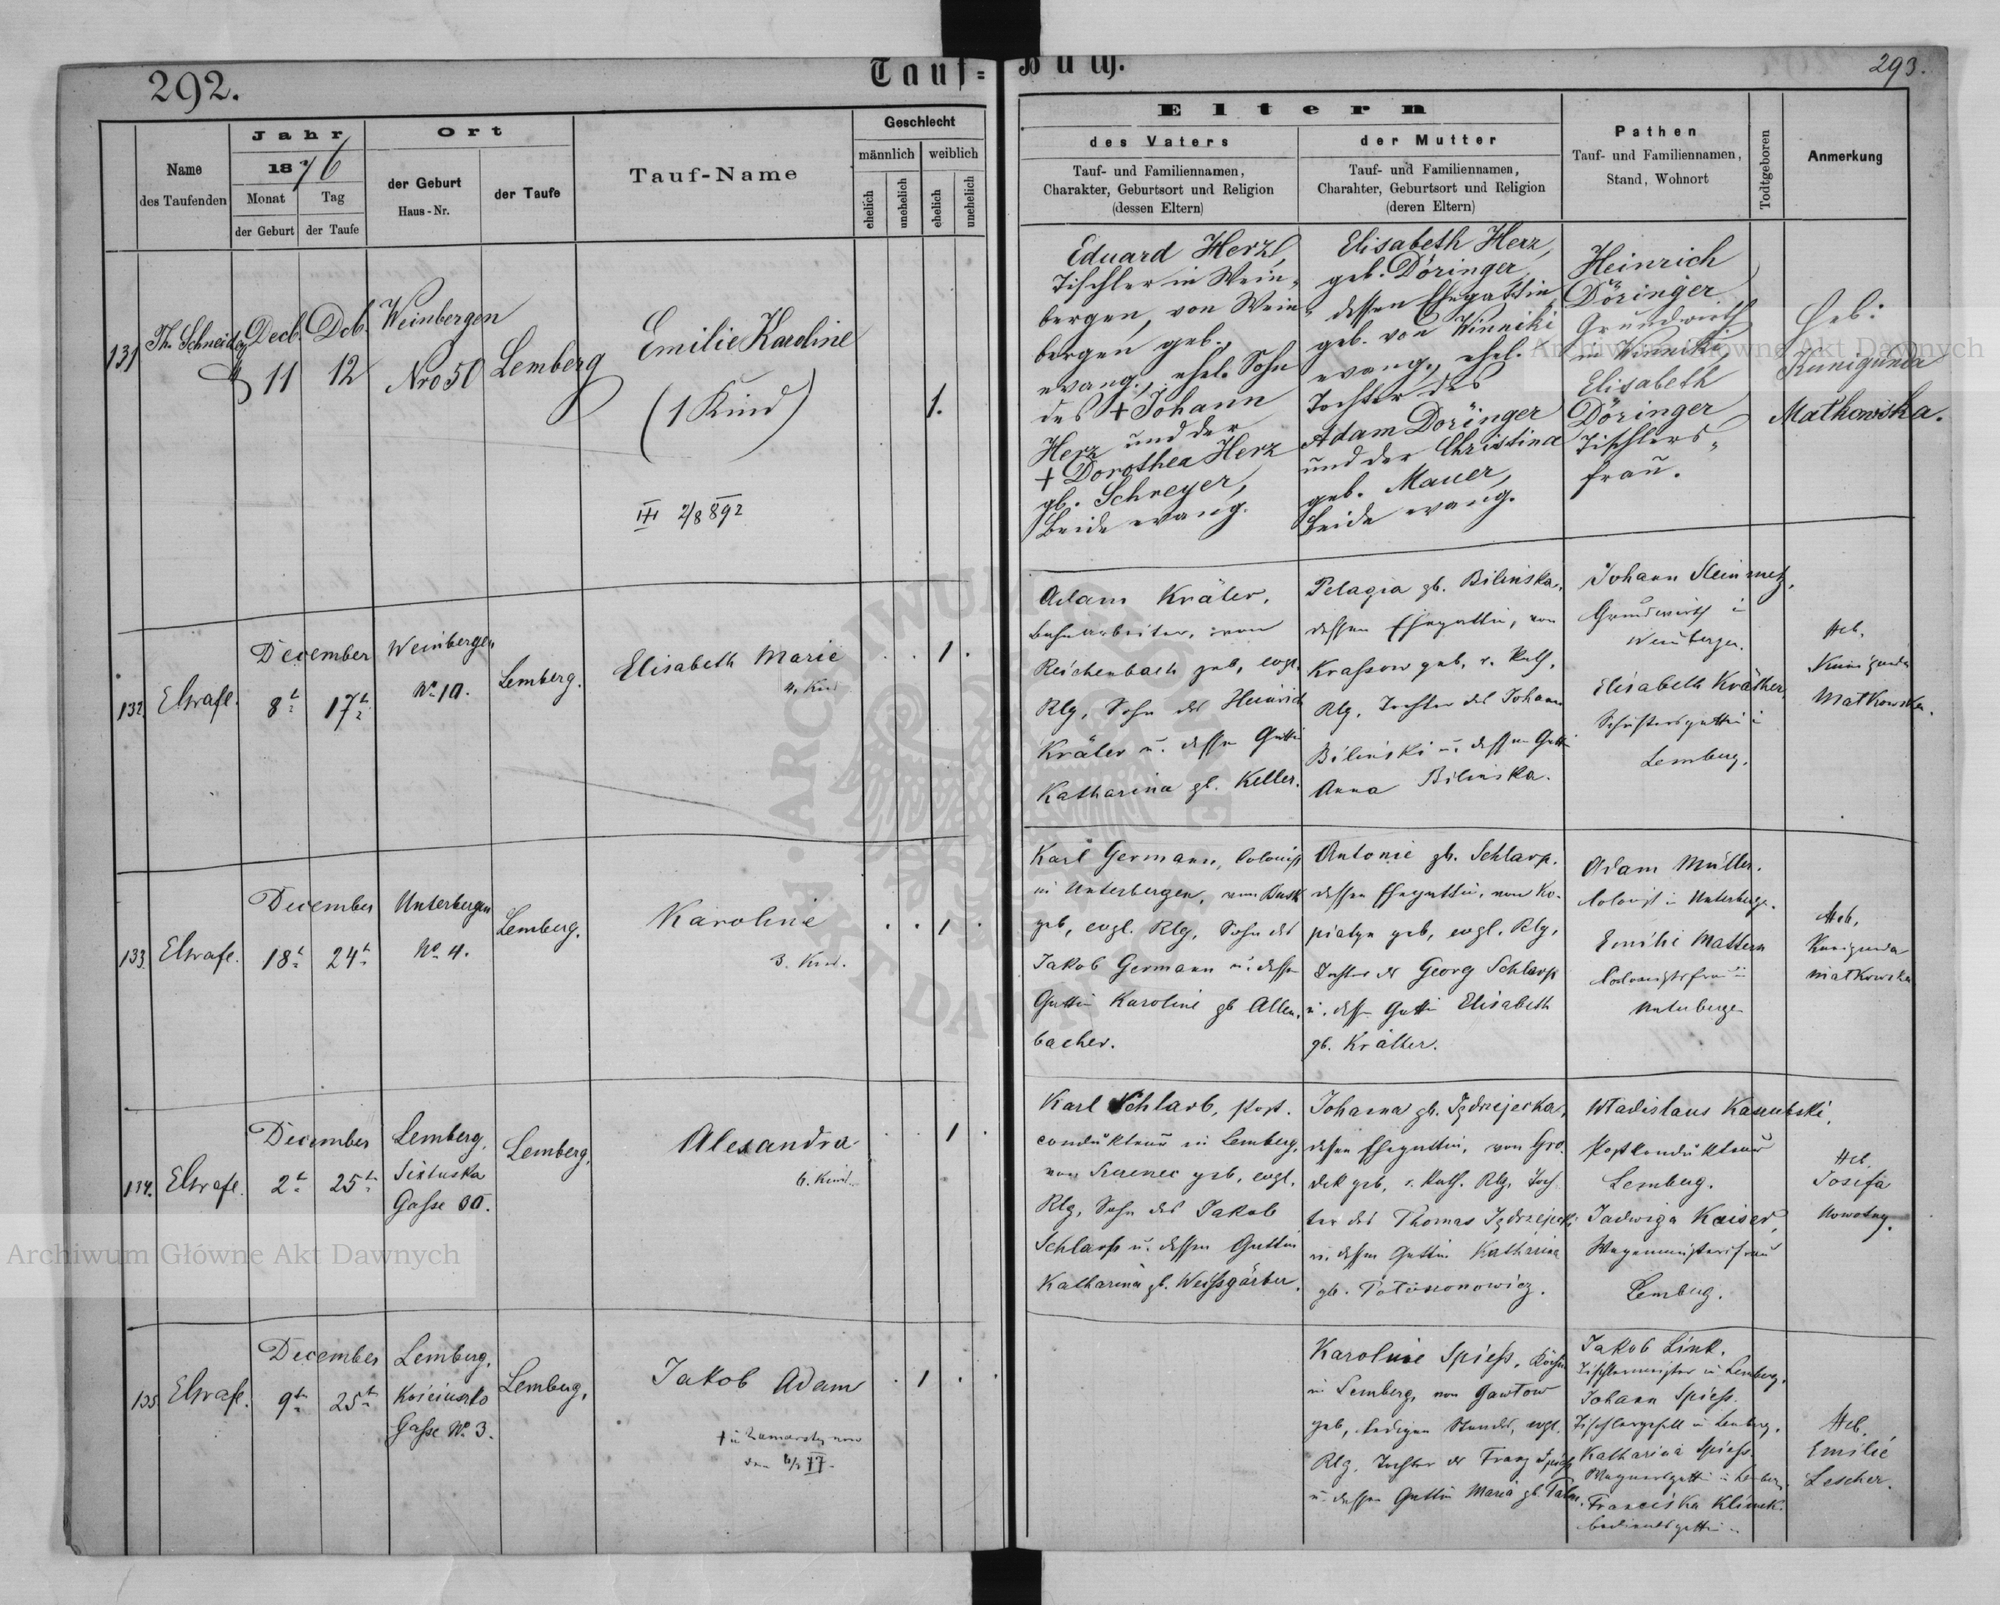 292.
Tauf=
Buch.
293.
Name
des Taufenden
Jahr
1876
Monat
Tag
der Geburt
der Taufe
Ort
der Geburt
Haus-Nr.
der Taufe
Tauf-Name
Geschlecht
männlich
weiblich
ehelich
unehelich
ehelich
unehelich
Eltern
des Vaters
Tauf- und Familiennamen,
Charakter, Geburtsort und Religion
(dessen Eltern)
der Mutter
Tauf- und Familiennamen,
Charahter, Geburtsort und Religion
(deren Eltern)
Pathen
Tauf- und Familiennamen,
Stand, Wohnort
Todtgeboren
Anmerkung
131
Th. Schneider
Decb.
11
Dcb.
12
Weinbergen
Nro 50
Lemberg
Emilie Karoline
(1 Kind)
III 2/8 892
1.
Eduard Herz,
Tischler in Wein-
bergen, von Wein
bergen geb.,
evang., ehel. Sohn
des + Johann
Herz und der
+ Dorothea Herz
gb. Schreyer,
beide evang.
Elisabeth Herz,
geb. Döringer,
dessen Ehegattin
geb. von Winniki
evang., ehel.
Tochter des
Adam Doringer
und der Christina
geb. Mauer,
beide evang.
Heinrich
Döringer
Grundwirth
in Winniki
Elisabeth
Döringer
Tischlers-
frau.
Heb:
Kunigunda
Matkowska.
132.
December
8t
17t
Weinbergen
No 10.
Lemberg.
Elisabeth Marie
4. Kind
1
Adam Kräler,
Bahnarbeiter, von
Reichenbach geb, evgl.
Rlg, Sohn des Heinrich
Kräler u. dessen Gattin
Katharina gb. Keller.
Pelagia gb. Bilinska,
dessen Ehegattin, von
Krassow geb, r. kath,
Rlg, Tochter des Johann
Bilinski u. dessen Gattin
Anna Bilinska.
Johann Steinmetz,
Grundwirth i
Weinbergen.
Elisabeth Kräther
i
Lemberg.
Heb.
Kunigunda
Matkowska.
133.
December
18t
24t
Unterbergen
No 4.
Lemberg.
Karoline
3. Kind.
1
Karl Germann, Colonist
in Unterbergen, von Busk
geb, evgl. Rlg, Sohn des
Jakob Germann u. dessen
Gattin Karoline gb Allen-
bacher.
Antonie gb. Schlarp.
dessen Ehegattin, von Ko-
piatyn geb, evgl. Rlg,
Tochter des Georg Schlarp
u. dessen Gattin Elisabeth
gb. Kräther.
Adam Müller.
Colonist in Unterbergen.
Emilie Mattern
Colonistsfrau in
Unterbergen
Heb.
Kunigunda
Matkowska
134.
December
2t
25t
Lemberg,
Sixtuska
Gasse 30.
Lemberg,
Alexandra
6. Kind.
1
Karl Schlarb, Post-
condukteur in Lemberg,
von geb, evgl.
Rlg, Sohn des Jakob
Schlarb u. dessen Gattin
Katharina gb. Weissgärber.
Johanna gb. Jędrzejecka,
dessen Ehegattin, von Gro-
dek geb, r. kath. Rlg, Toch
ter des Thomas
u. dessen Gattin Katharina
gb.
Wladislaus
Postkondukteur
Lemberg.
Jadwiga Kaiser,
Wagenmeistersfrau
Lemberg.
Heb.
Josefa
Nowotny.
135.
December
9t
25t
Lemberg,
Kościuszko
Gasse No 3.
Lemberg,
Jakob Adam
1
Karoline Spiess, Köchin
in Lemberg, von
geb, ledigen Standes, evgl.
Rlg, Tochter des Franz Spiess
u. dessen Gattin Maria gb.
Jakob Link.
Tischlermeister in Lemberg,
Johann Spiess.
Tischlergesell in Lemberg,
Katharina Spiess.
Franciska Klimek.
Heb.
Emilie
Lescher.
Archiwum Główne Akt Dawnych
Archiwum Główne Akt Dawnych